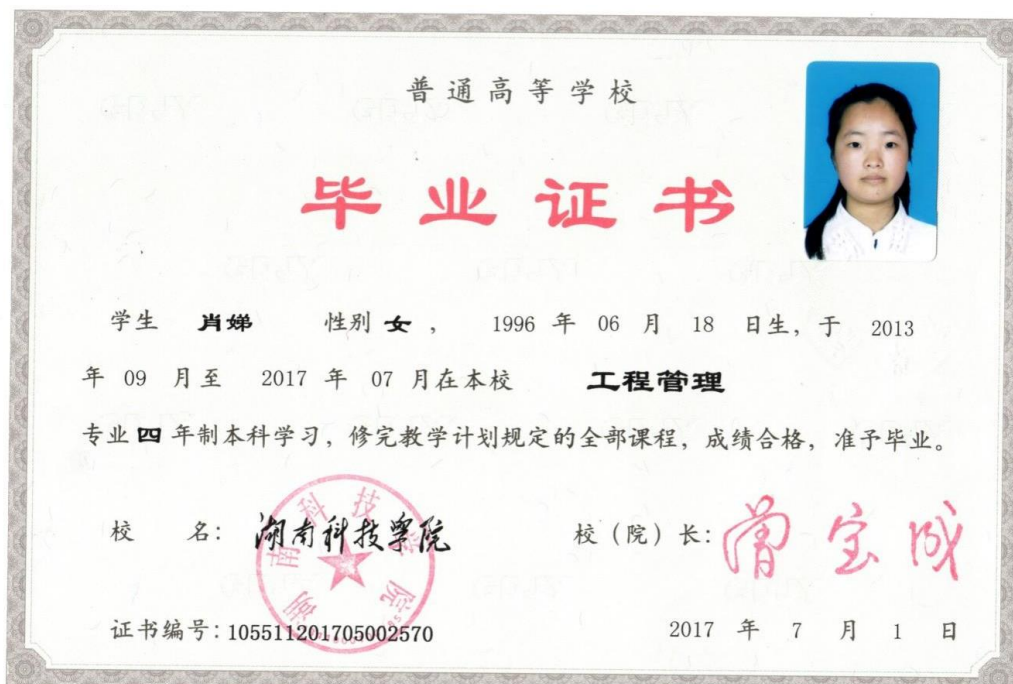 普通高等学校
毕业证书
学生 肖娣 性别 女 , 1996 年 06 月 18 日生, 于 2013
年 09 月至 2017 年 07 月在本校 工程管理
专业 四 年制本科学习, 修完教学计划规定的全部课程, 成绩合格, 准予毕业。
校 名: 湖南科技学院
湖南科技学院
校（院）长: 曾宝成
证书编号: 105511201705002570
2017 年 7 月 1 日